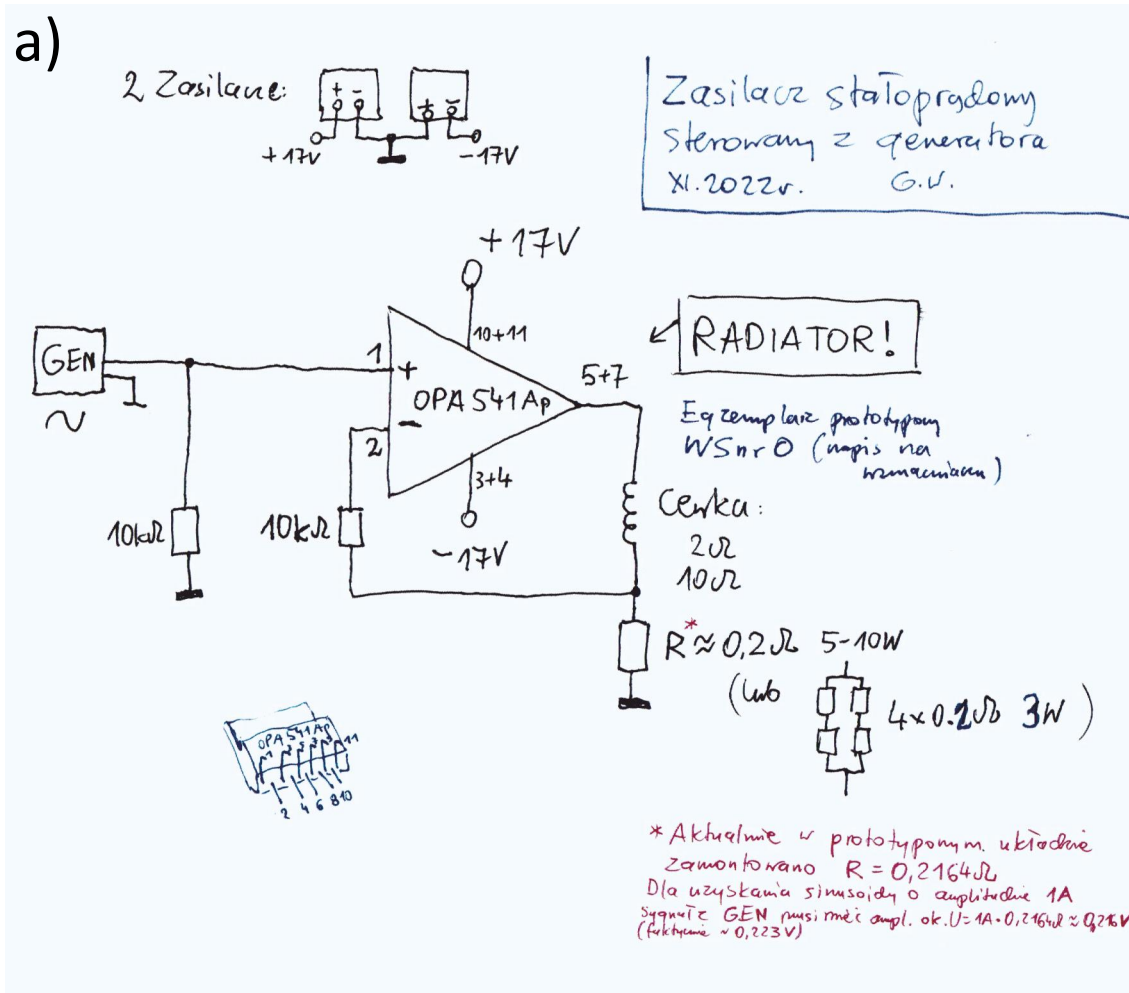 a)
2 Zasilacze:
+ -
+ -
+17V
-17V
Zasilacz stałoprądowy
sterowany z generatora
XI.2022r. G.W.
+17V
10+11
GEN
~
1
+
OPA 541Ap
5+7
RADIATOR!
-
2
3+4
-17V
10kΩ
10kΩ
Egzemplarz prototypowy
WSnrO (napis na
wzmacniaczu)
Cewka:
2Ω
10Ω
R* ≈ 0,2Ω 5-10W
(lub
4×0.2Ω 3W )
OPA 541Ap
1 3 5 7 9 11
2 4 6 8 10
* Aktualnie w prototypowym. układzie
zamontowano R = 0,2164Ω
Dla uzyskania sinusoidy o amplitudzie 1A
Sygnał z GEN musi mieć ampl. ok. U=1A·0,2164Ω ≈ 0,216V
(faktycznie ~0,223V)